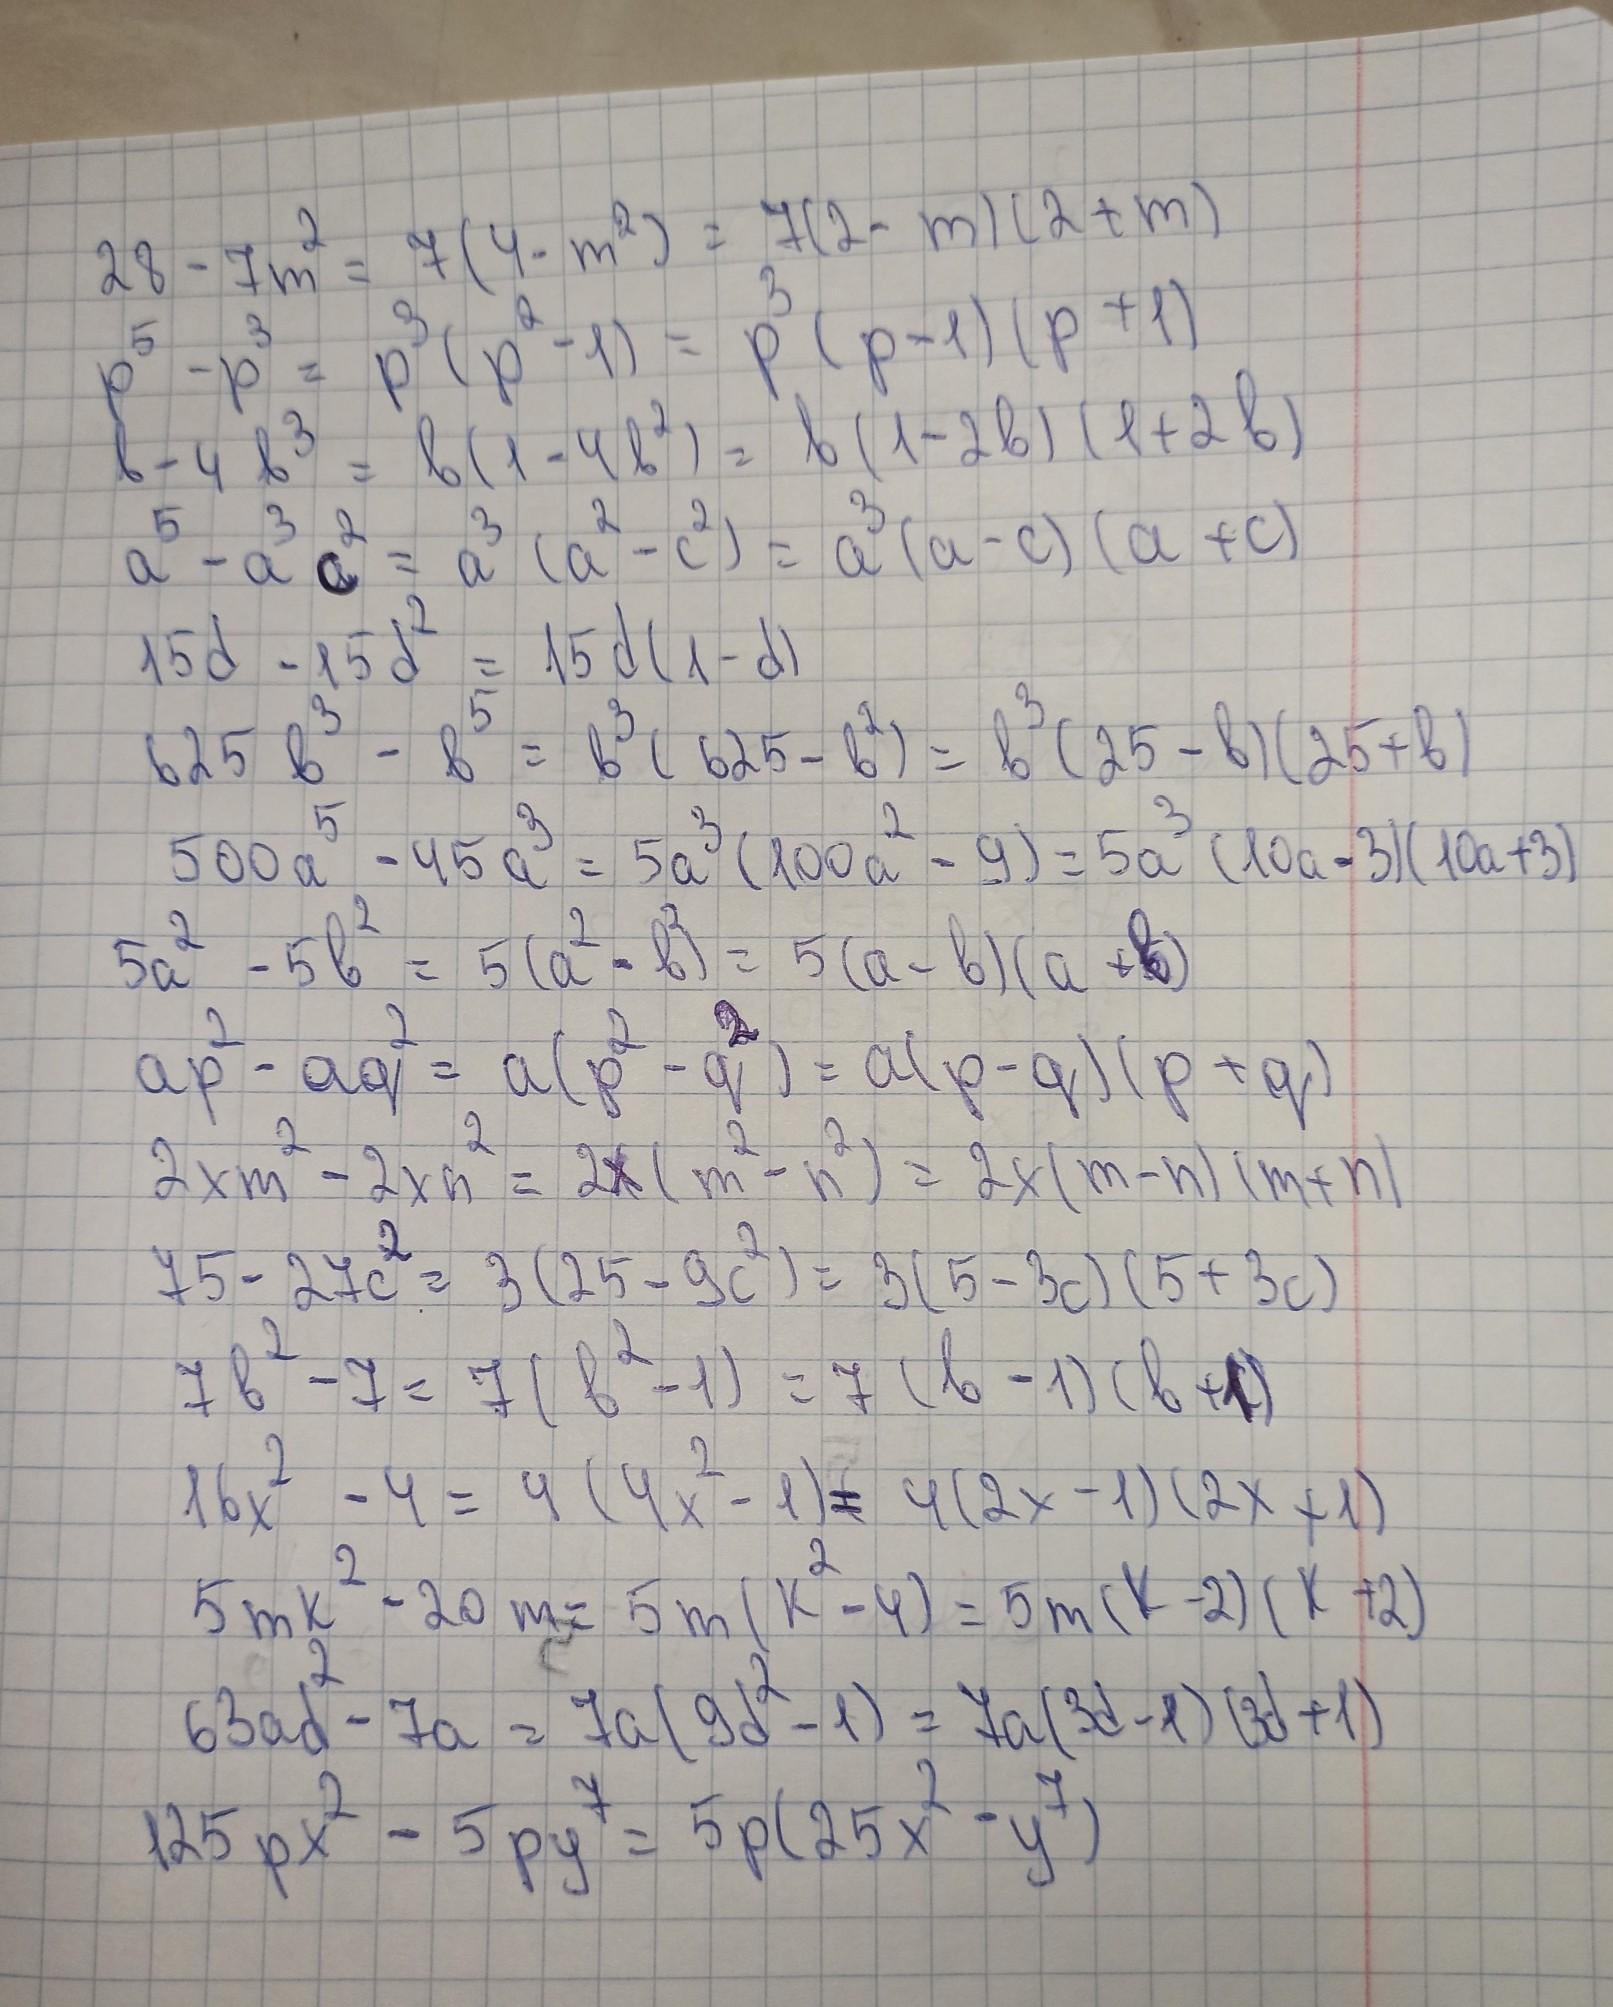 28 - 7m² = 7(4 - m²) = 7(2 - m)(2 + m)
p⁵ - p³ = p³(p² - 1) = p³(p - 1)(p + 1)
b - 4b³ = b(1 - 4b²) = b(1 - 2b)(1 + 2b)
a⁵ - a³c² = a³(a² - c²) = a³(a - c)(a + c)
15d - 15d² = 15d(1 - d)
625b³ - b⁵ = b³(625 - b²) = b³(25 - b)(25 + b)
500a⁵ - 45a³ = 5a³(100a² - 9) = 5a³(10a - 3)(10a + 3)
5a² - 5b² = 5(a² - b²) = 5(a - b)(a + b)
ap² - aq² = a(p² - q²) = a(p - q)(p + q)
2xm² - 2xn² = 2x(m² - n²) = 2x(m - n)(m + n)
75 - 27c² = 3(25 - 9c²) = 3(5 - 3c)(5 + 3c)
7b² - 7 = 7(b² - 1) = 7(b - 1)(b + 1)
16x² - 4 = 4(4x² - 1) = 4(2x - 1)(2x + 1)
5mk² - 20m = 5m(k² - 4) = 5m(k - 2)(k + 2)
63ad² - 7a = 7a(9d² - 1) = 7a(3d - 1)(3d + 1)
125px² - 5py⁷ = 5p(25x² - y⁷)